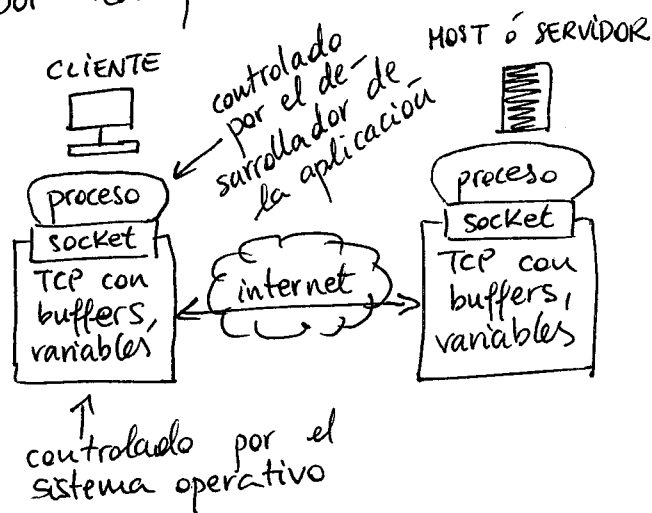 por
CLIENTE
HOST ó SERVIDOR
controlado
por el de-
sarrollador de
la aplicación
proceso
socket
TCP con
buffers,
variables
internet
proceso
socket
TCP con
buffers,
variables
controlado por el
sistema operativo